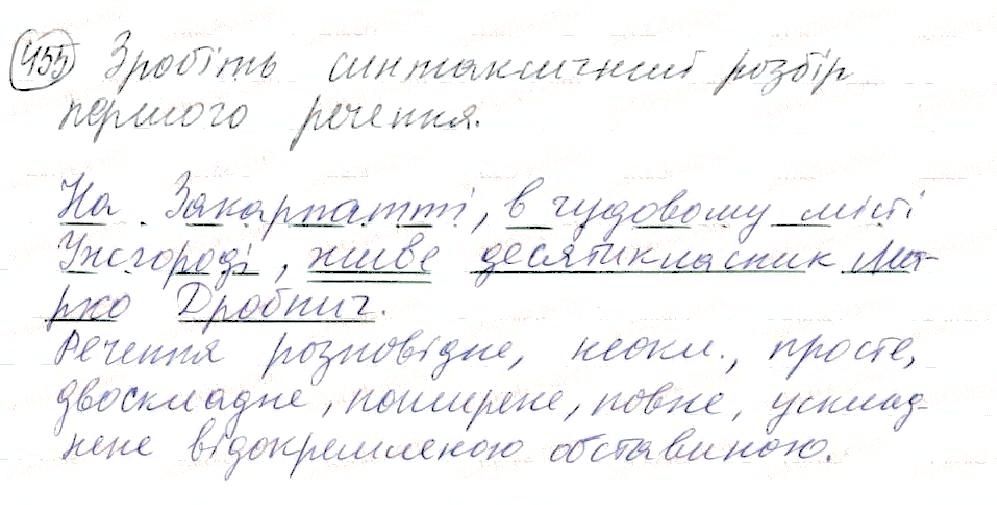 455 Зробіть синтаксичний розбір
першого речення.
На Закарпатті, в чудовому місті
Ужгороді, живе десятикласник Ма-
рко Дробнич.
Речення розповідне, неокл., просте,
двоскладне, поширене, повне, усклад-
нене відокремленою обставиною.